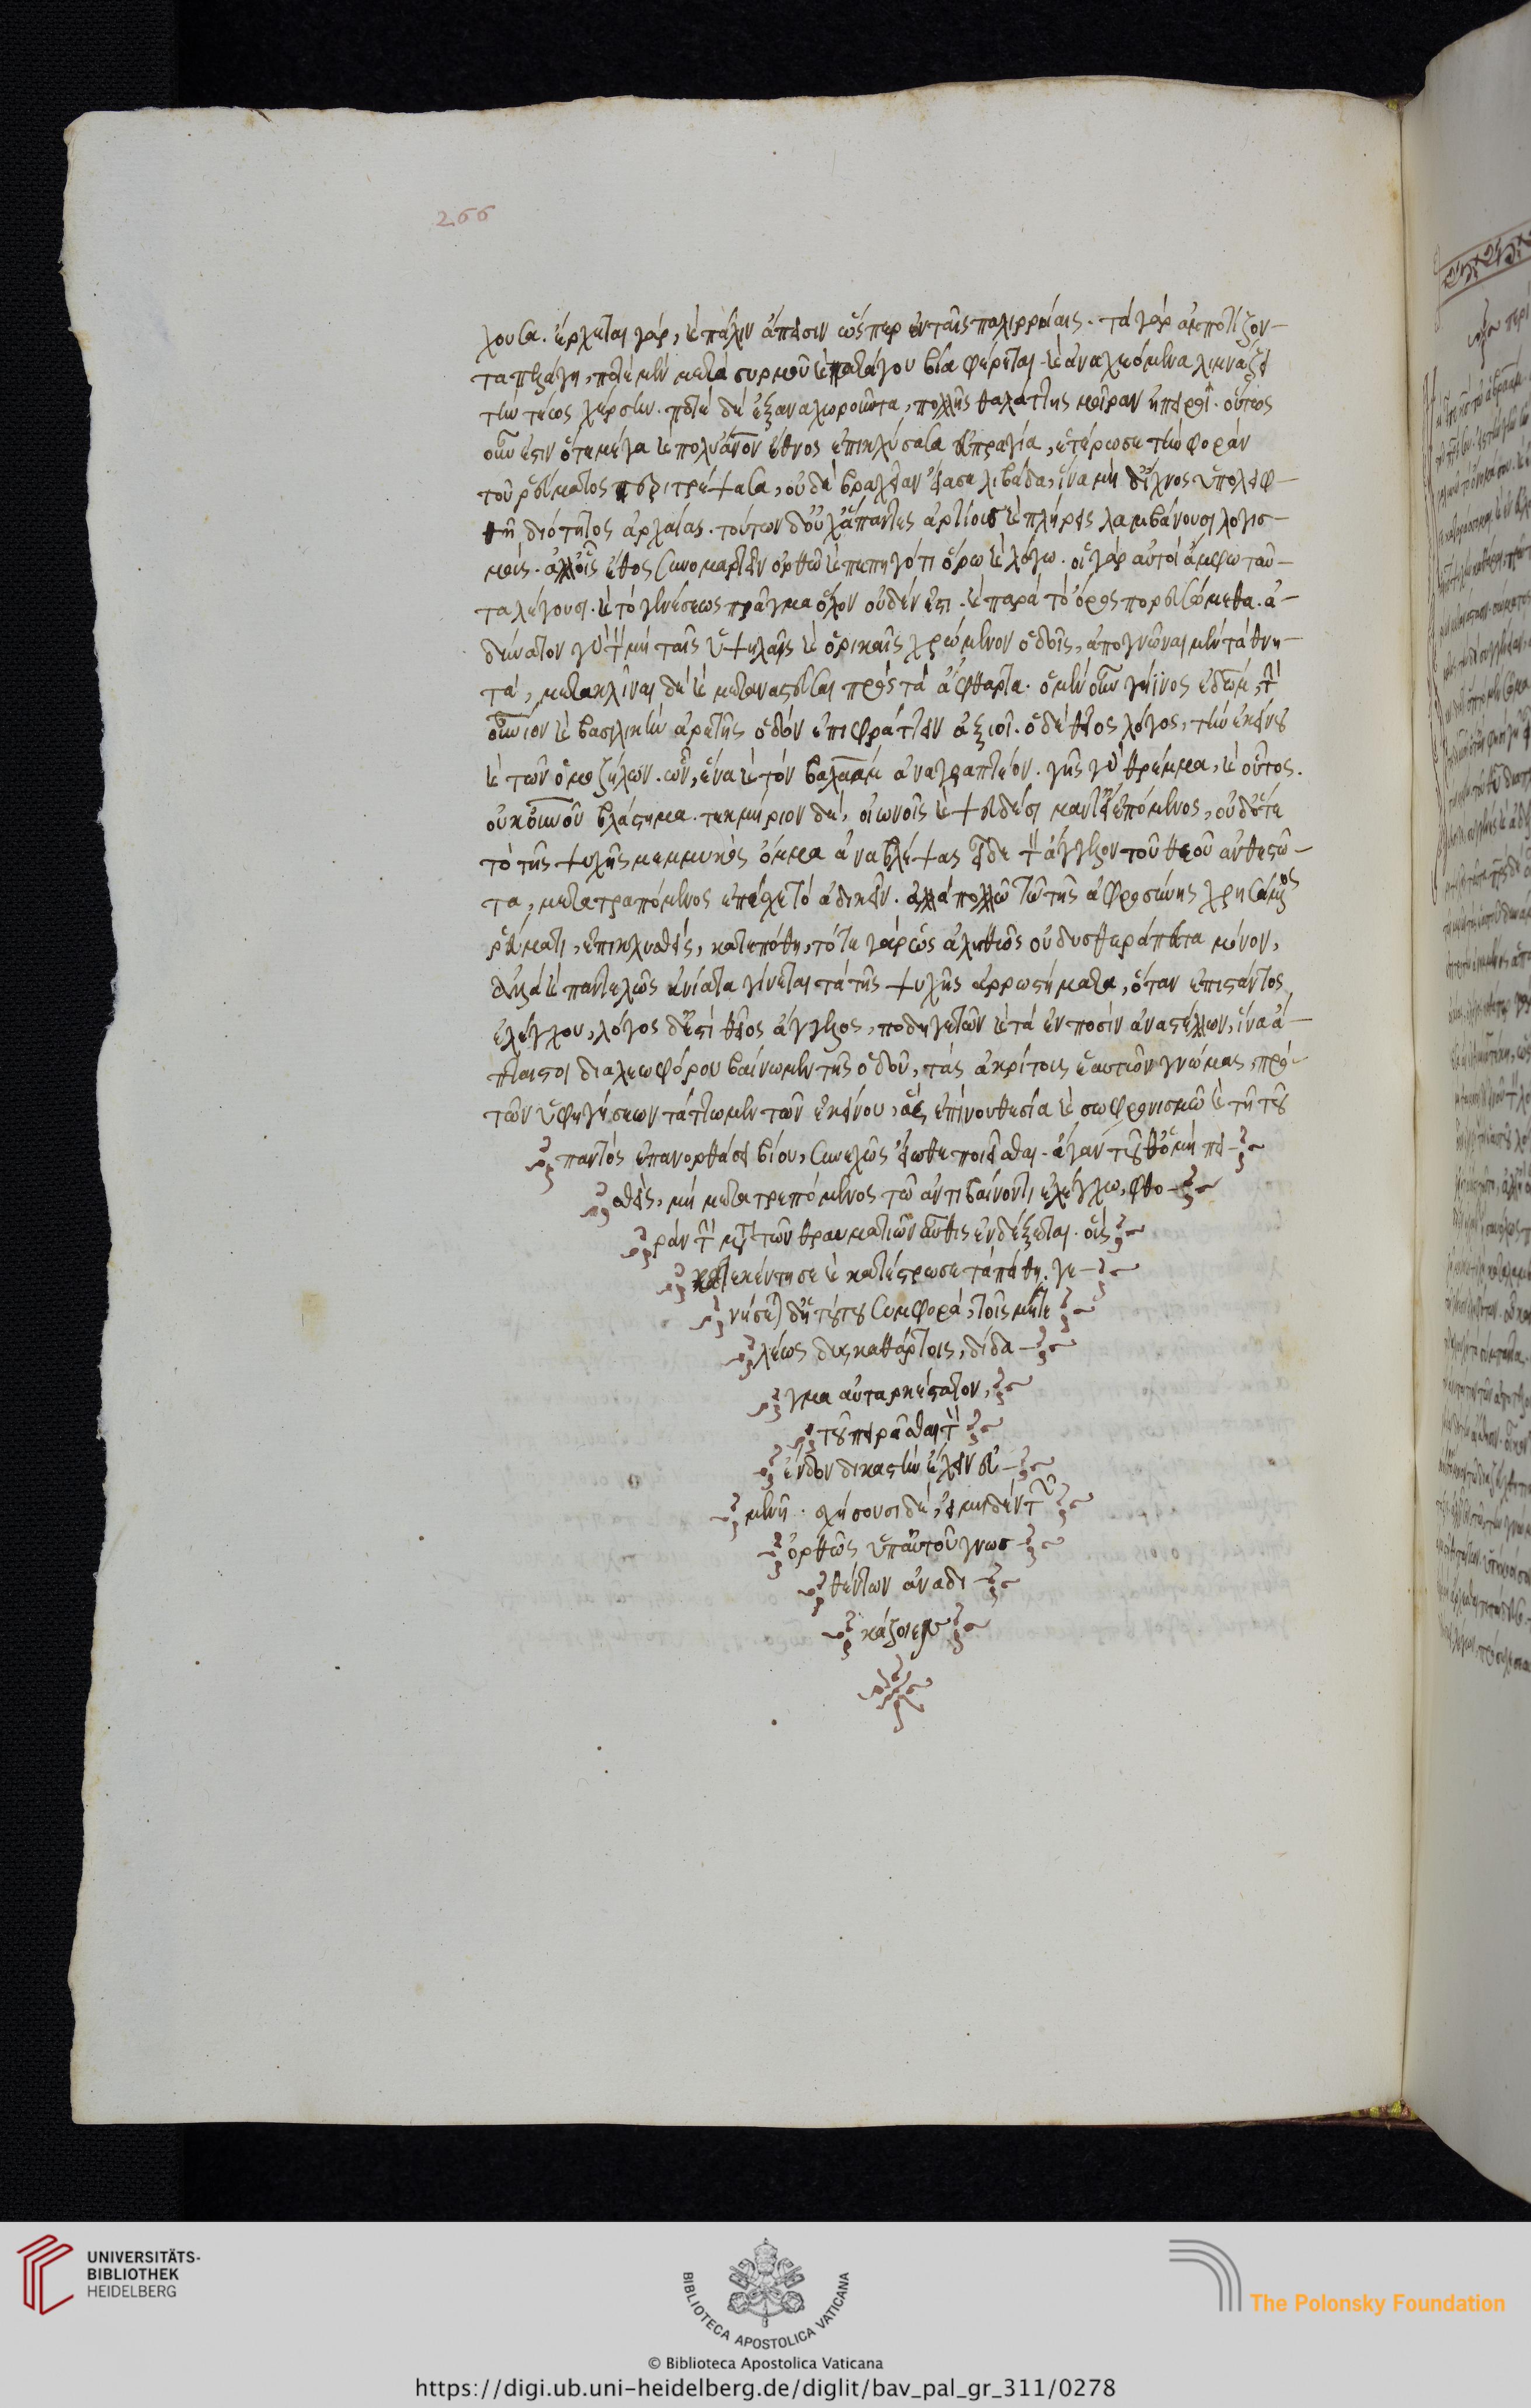 266
χουσα. ἔρχεται γάρ, καὶ πάλιν ἄπεισιν ὥσπερ ἐν ταῖς παλιρροίαις. τὰ γὰρ ἀμποτίζον-
τα πελάγη, ποτὲ μὲν μετὰ συρμοῦ καὶ πατάγου βία φέρεται καὶ ἀναχεόμενα λιμνάζει
τὴν τέως χέρσον. ποτὲ δὲ ἐξαναχωροῦντα, πολλῆς θαλάττης μοῖραν ἠπειροῖ. οὕτως
οὖν ἔστιν ὅτε μέγα καὶ πολυάνον ἔθνος ἐπικλύσασα εὐπραγία, ἑτέρωσε τὴν φορὰν
τοῦ ῥεύματος περιτρέψασα, οὐδὲ βραχεῖαν εἴασε λιβάδα, ἵνα μὴ δ' ἴχνος ὑπολειφ-
θῆ πιότητος ἀρχαίας. τούτων δ' οὐχ ἅπαντες ἀρτίους καὶ πλήρεις λαμβάνουσι λογισ-
μούς. ἀλλ' οἷς ἔθος συνομαρτεῖν ὀρθῶ καὶ πεπηγότι ὅρω καὶ λόγω. οἱ γὰρ αὐτοὶ ἄμφω ταῦ-
τα λέγουσι. καὶ τὸ γενέσεως πρᾶγμα ὅλον οὐδέν ἐστι. καὶ παρὰ τὸ ὄρος πορευσώμεθα. ἀ-
δύνατον γὰρ τὸν μὴ ταῖς ὑψηλαῖς καὶ ὁρικαῖς χρώμενον ὁδοῖς, ἀπογνῶναι μὲν τὰ θνη-
τά, μετακλῖναι δὲ καὶ μεταναστεῦσαι πρὸς τὰ ἄφθαρτα. ὁ μὲν οὖν γήϊνος ἐδώμ, τὴν
οὐνιον καὶ βασιλικὴν ἀρετῆς ὁδὸν ἐπιφράττειν ἀξιοῖ. ὁ δὲ θεῖος λόγος, τὴν ἐκείνου
καὶ τῶν ὁμοζήλων. ὧν, ἕνα καὶ τὸν βαλαὰμ ἀναγραπτέον. γῆς γὰρ θρέμμα, καὶ οὗτος.
οὐκ οὐνοῦ βλάστημα. τεκμήριον δέ, οἰωνοῖς καὶ ψευδέσι μαντείαις ἑπόμενος, οὐδ' ὅτε
τὸ τῆς ψυχῆς μεμυκὸς ὄμμα ἀναβλέψας εἶδε τὸν ἄγγελον τοῦ θεοῦ ἀνθεστῶ-
τα, μετατραπόμενος ἐπέσχε τὸ ἀδικεῖν. ἀλλὰ πολλῶ τῶ τῆς ἀφροσύνης χρησάμενος
ῥεύματι, ἐπικλυσθείς, κατεπόθη, τότε γὰρ ὡς ἀληθῶς οὐ δυσθεράπευτα μόνον,
ἀλλὰ καὶ παντελῶς ἀνίατα γίνεται τὰ τῆς ψυχῆς ἀρρωστήματα, ὅταν ἐπιστάντος
ἐλέγχου, λόγος δ' ἐστὶ θεῖος ἄγγελος, ποδηγετῶν καὶ τὰ ἐν ποσὶν ἀναστέλλων, ἵνα ἄ-
πταιστοι διαλεωφόρου βαίνωμεν τῆς ὁδοῦ, τὰς ἀκρίτους ἑαυτῶν γνώμας, πρὸ
τῶν ὑφηγήσεων τάττωμεν τῶν ἐκείνου, ἃς ἐπὶ νουθεσία καὶ σωφρονισμῶ καὶ τῆ τοῦ
παντὸς ἐπανορθώσει βίου, συνεχῶς εἴωθε ποιεῖσθαι. διὰ τοῦθ' ὁ μὴ πει-
σθείς, μὴ μετατρεπόμενος τῶ ἀντιβαίνοντι ἐλέγχω, φθο-
ρὰν τὴν μετὰ τῶν τραυματιῶν αὖθις ἐνδέξεται. οὓς
κατεκέντησε καὶ κατέτρωσε τὰ πάθη. γε-
νήσεται δ' ἡ τούτου συμφορά, τοῖς μὴ τε
λέως δυσκαθάρτοις, δίδα-
γμα αὐταρκέστατον,
τοῦ πειρᾶσθαι τὸν
ἔνδον δικαστὴν ἔχειν εὐ-
μενῆ. σχήσουσι δέ, εἰ μηδὲν τῶν
ὀρθῶς ὑπ' αὐτοῦ γνωσ-
θέντων ἀναδι-
κάζοιεν
UNIVERSITÄTS-
BIBLIOTHEK
HEIDELBERG
BIBLIOTECA APOSTOLICA VATICANA
The Polonsky Foundation
© Biblioteca Apostolica Vaticana
https://digi.ub.uni-heidelberg.de/diglit/bav_pal_gr_311/0278